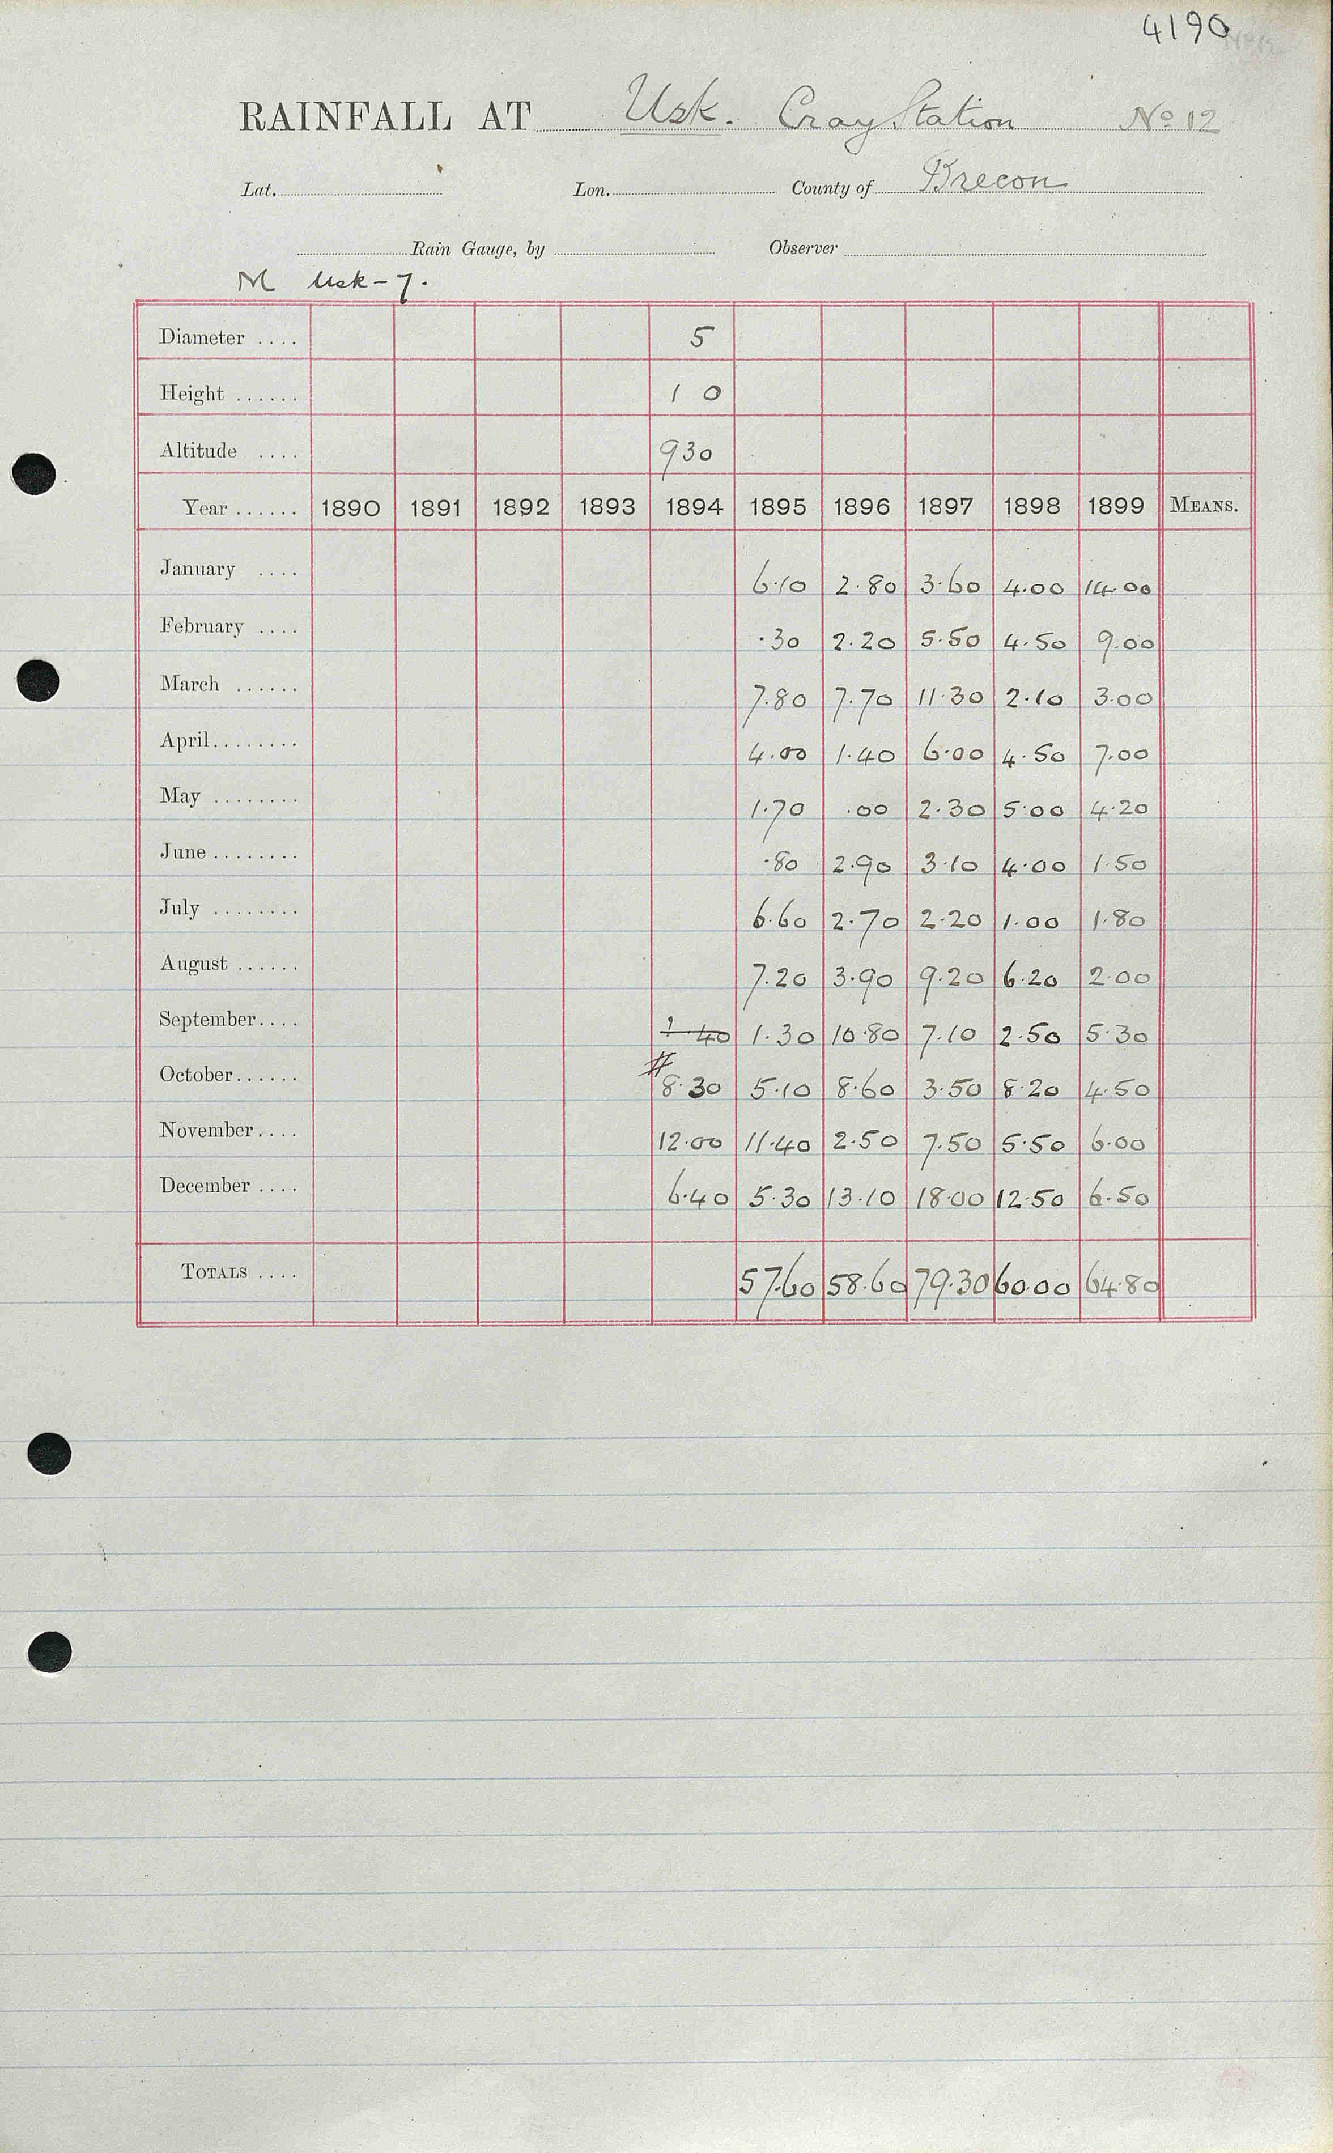 4190
RAINFALL AT Usk. Cray Station No 12
Lat. Lon. County of Brecon
Rain Gauge, by Observer
M Usk-7.
Diameter .... 5
Height ...... 1 0
Altitude .... 930
Year ...... 1890 1891 1892 1893 1894 1895 1896 1897 1898 1899 MEANS.
January .... 6.10 2.80 3.60 4.00 14.00
February .... .30 2.20 5.50 4.50 9.00
March ...... 7.80 7.70 11.30 2.10 3.00
April........ 4.00 1.40 6.00 4.50 7.00
May ........ 1.70 .00 2.30 5.00 4.20
June ........ .80 2.90 3.10 4.00 1.50
July ........ 6.60 2.70 2.20 1.00 1.80
August ...... 7.20 3.90 9.20 6.20 2.00
September.... 40 1.30 10.80 7.10 2.50 5.30
October...... 8.30 5.10 8.60 3.50 8.20 4.50
November.... 12.00 11.40 2.50 7.50 5.50 6.00
December .... 6.40 5.30 13.10 18.00 12.50 6.50
TOTALS .... 57.60 58.60 79.30 60.00 64.80